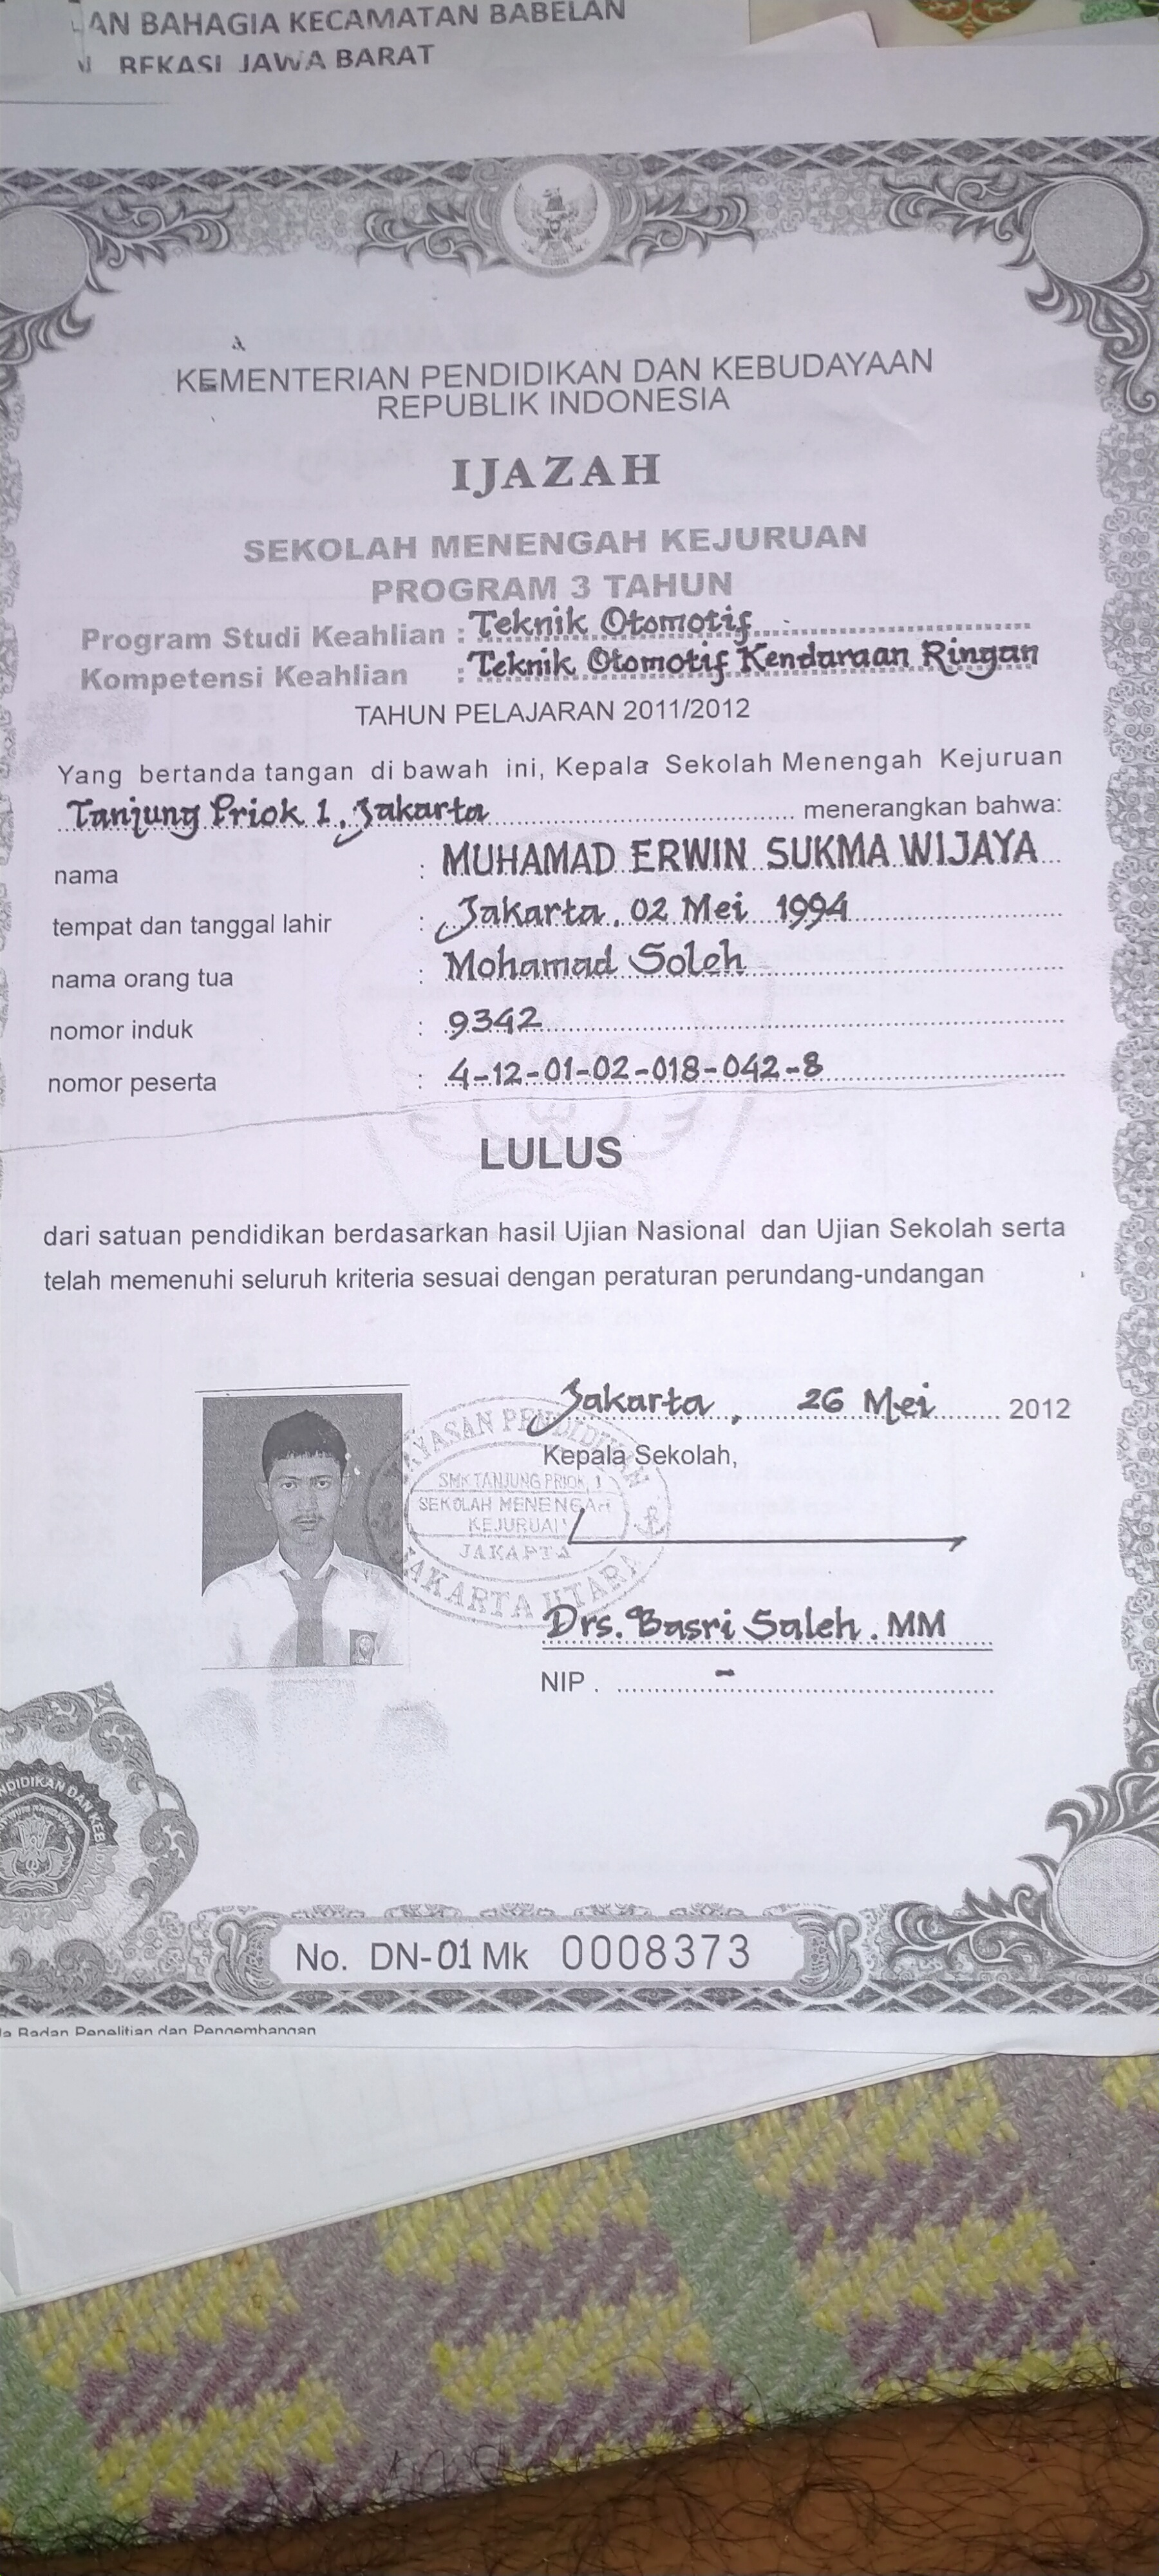 AN BAHAGIA KECAMATAN BABELAN
BEKASI JAWA BARAT
KEMENTERIAN PENDIDIKAN DAN KEBUDAYAAN
REPUBLIK INDONESIA
IJAZAH
SEKOLAH MENENGAH KEJURUAN
PROGRAM 3 TAHUN
Program Studi Keahlian : Teknik Otomotif
Kompetensi Keahlian : Teknik Otomotif Kendaraan Ringan
TAHUN PELAJARAN 2011/2012
Yang bertanda tangan di bawah ini, Kepala Sekolah Menengah Kejuruan
Tanjung Priok 1, Jakarta menerangkan bahwa:
nama : MUHAMAD ERWIN SUKMA WIJAYA
tempat dan tanggal lahir : Jakarta, 02 Mei 1994
nama orang tua : Mohamad Soleh
nomor induk : 9342
nomor peserta : 4-12-01-02-018-042-8
LULUS
dari satuan pendidikan berdasarkan hasil Ujian Nasional dan Ujian Sekolah serta
telah memenuhi seluruh kriteria sesuai dengan peraturan perundang-undangan
Jakarta, 26 Mei 2012
Kepala Sekolah,
YAYASAN PENDIDIKAN
SMK TANJUNG PRIOK 1
SEKOLAH MENENGAH
KEJURUAN
JAKARTA
JAKARTA UTARA
Drs. Basri Saleh. MM
NIP. -
NDIDIKAN DAN KEB
2012
No. DN-01 Mk 0008373
la Badan Penelitian dan Pengembangan